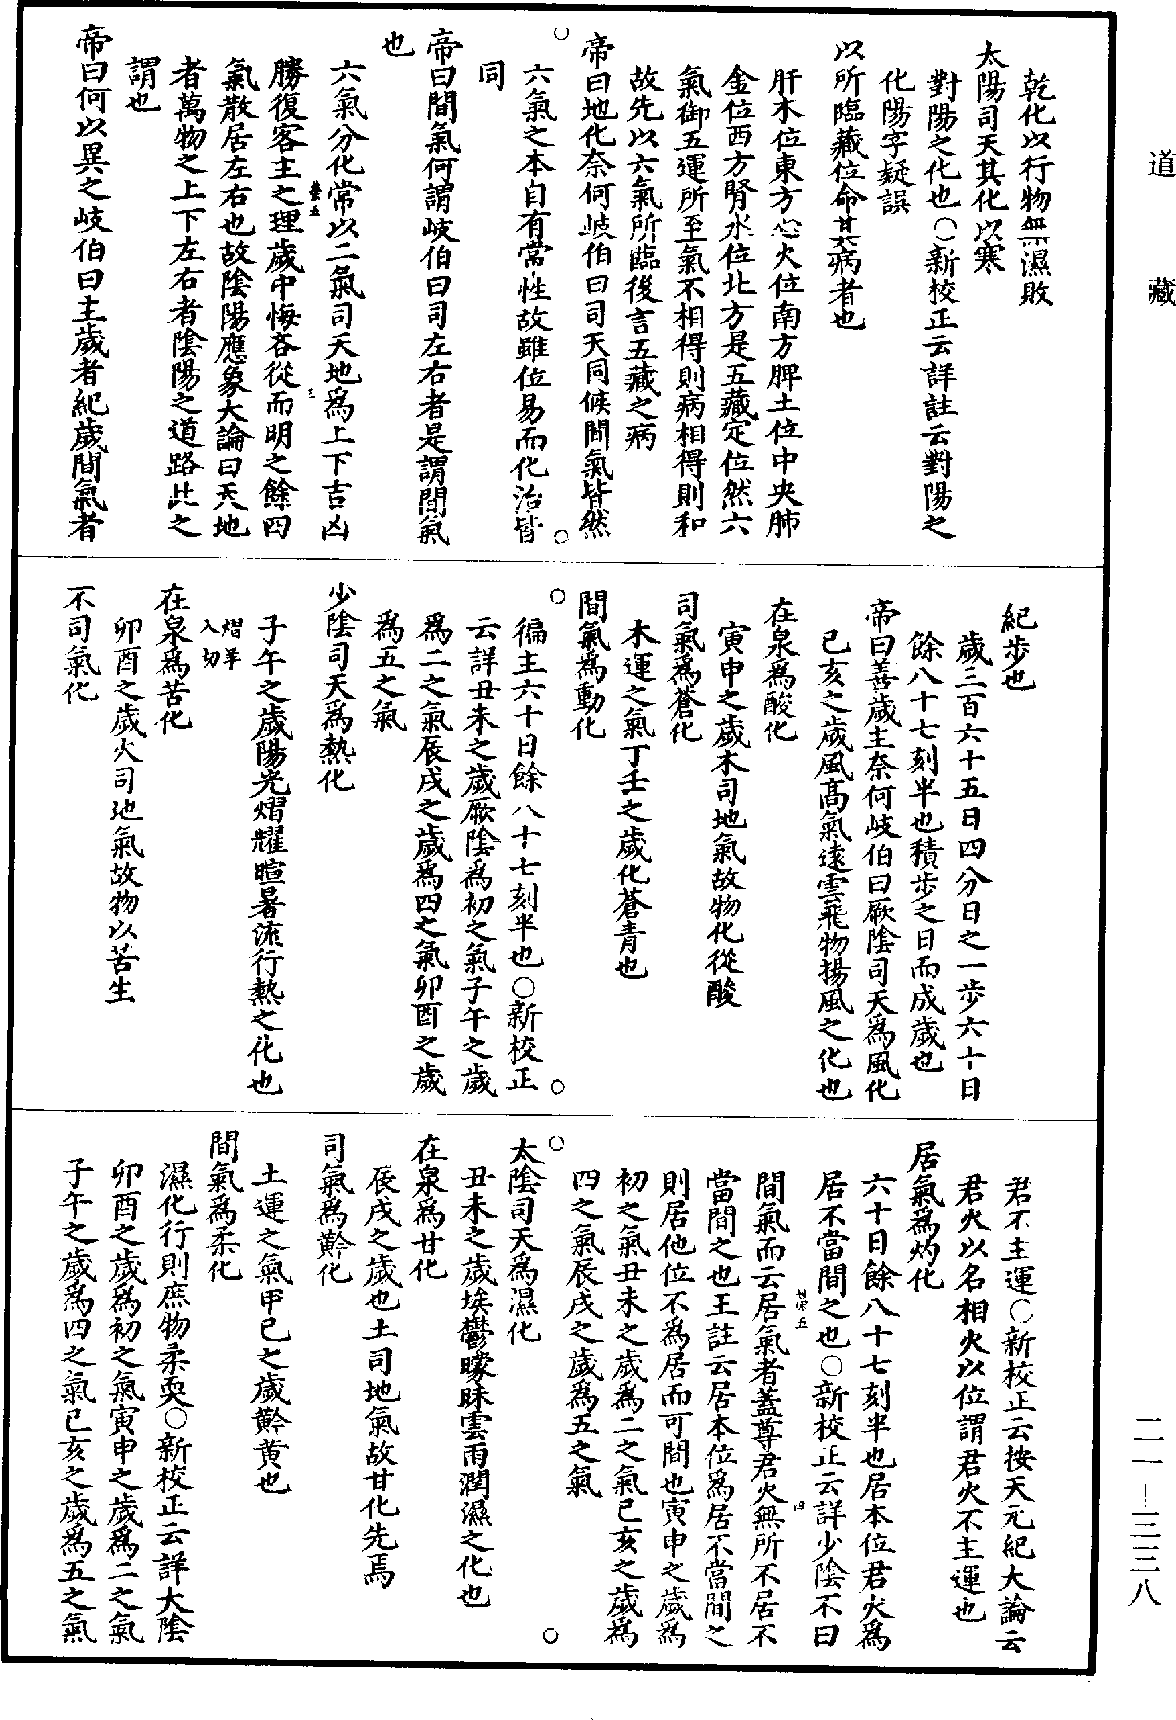 道藏
乾化以行物無濕敗
太陽司天其化以寒
對陽之化也○新校正云詳註云對陽之
化陽字疑誤
以所臨藏位命其病者也
肝木位東方心火位南方脾土位中央肺
金位西方腎水位北方是五藏定位然六
氣御五運所至氣不相得則病相得則和
故先以六氣所臨後言五藏之病
帝曰地化奈何岐伯曰司天同候間氣皆然
六氣之本自有常性故雖位易而化治皆
同
帝曰間氣何謂岐伯曰司左右者是謂間氣
也
六氣分化常以二氣司天地爲上下吉凶
勝復客主之理歲中悔吝從而明之餘四
氣散居左右也故陰陽應象大論曰天地
者萬物之上下左右者陰陽之道路此之
謂也
帝曰何以異之岐伯曰主歲者紀歲間氣者
紀步也
歲三百六十五日四分日之一步六十日
餘八十七刻半也積步之日而成歲也
帝曰善歲主奈何岐伯曰厥陰司天爲風化
巳亥之歲風高氣遠雲飛物揚風之化也
在泉爲酸化
寅申之歲木司地氣故物化從酸
司氣爲蒼化
木運之氣丁壬之歲化蒼青也
間氣爲動化
徧主六十日餘八十七刻半也○新校正
云詳丑未之歲厥陰爲初之氣子午之歲
爲二之氣辰戌之歲爲四之氣卯酉之歲
爲五之氣
少陰司天爲熱化
子午之歲陽光熠耀暄暑流行熱之化也
熠羊
入切
在泉爲苦化
卯酉之歲火司地氣故物以苦生
不司氣化
君不主運○新校正云按天元紀大論云
君火以名相火以位謂君火不主運也
居氣爲灼化
六十日餘八十七刻半也居本位君火爲
居不當間之也○新校正云詳少陰不曰
間氣而云居氣者蓋尊君火無所不居不
當間之也王註云居本位爲居不當間之
則居他位不爲居而可間也寅申之歲爲
初之氣丑未之歲爲二之氣巳亥之歲爲
四之氣辰戌之歲爲五之氣
太陰司天爲濕化
丑未之歲埃鬱曚昧雲雨潤濕之化也
在泉爲甘化
辰戌之歲也土司地氣故甘化先焉
司氣爲黅化
土運之氣甲己之歲黅黄也
間氣爲柔化
濕化行則庶物柔耎○新校正云詳大陰
卯酉之歲爲初之氣寅申之歲爲二之氣
子午之歲爲四之氣巳亥之歲爲五之氣
二一—三三八